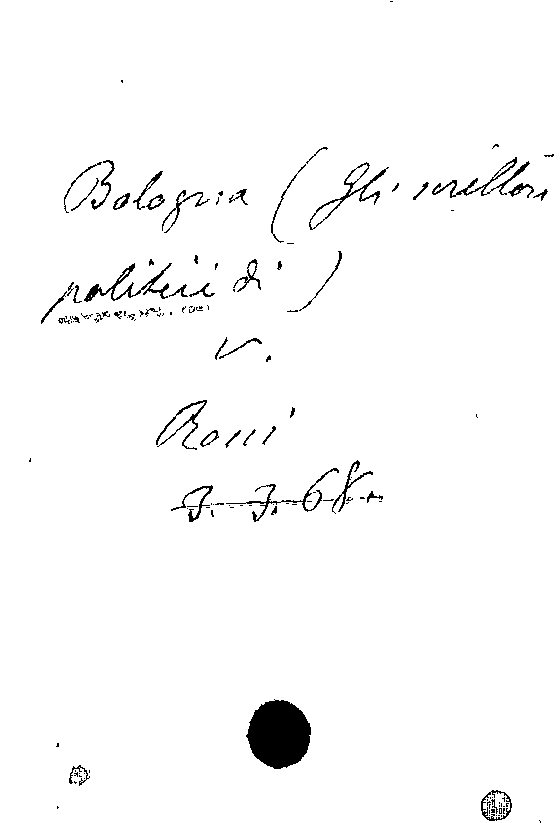 Bologna (Gli scrittori
politici di)
v.
Rossi
J. J. 68.